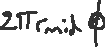 2πr mid ϕ